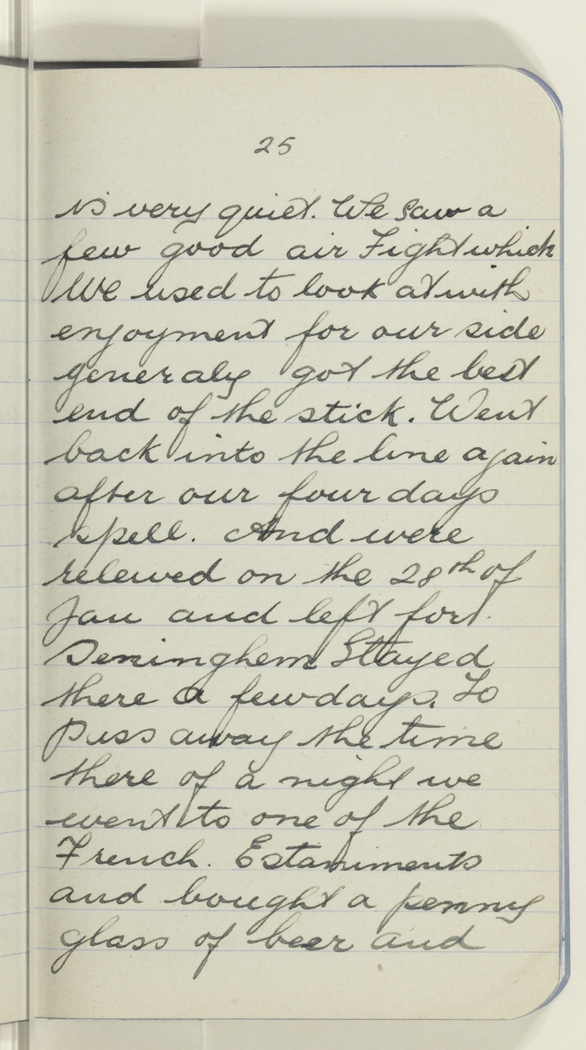 25
is very quiet. We saw a
few good air Fight which
We used to look at with
enjoyment for our side
generaly got the best
end of the stick. Went
back into the line again
after our four days
spell. And were
releived on the 28th of
Jan and left for.
Seninghem Stayed
there a few days. To
puss away the time
there of a night we
went to one of the
French. Estaminments
and bought a penny
glass of beer and